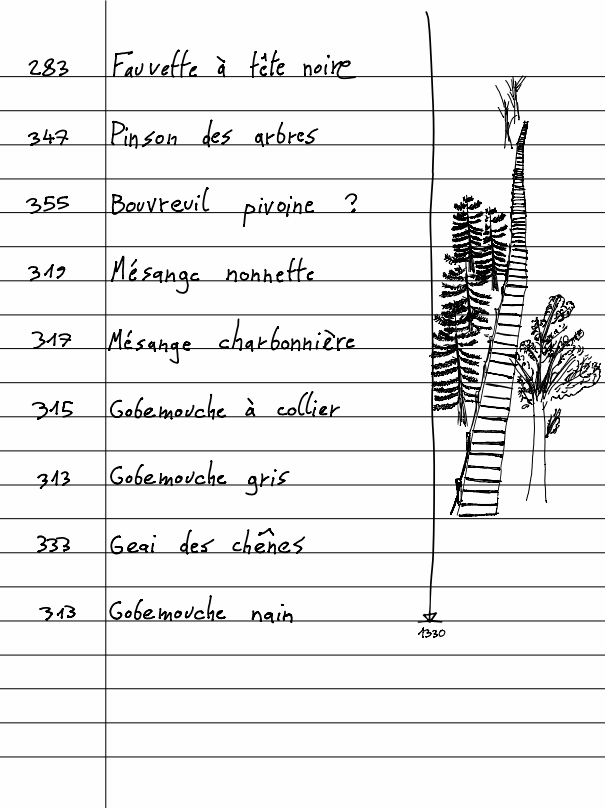 283 Fauvette à tête noire
347 Pinson des arbres
355 Bouvreuil pivoine ?
319 Mésange nonnette
317 Mésange charbonnière
315 Gobemouche à collier
313 Gobemouche gris
333 Geai des chênes
313 Gobemouche nain
1330